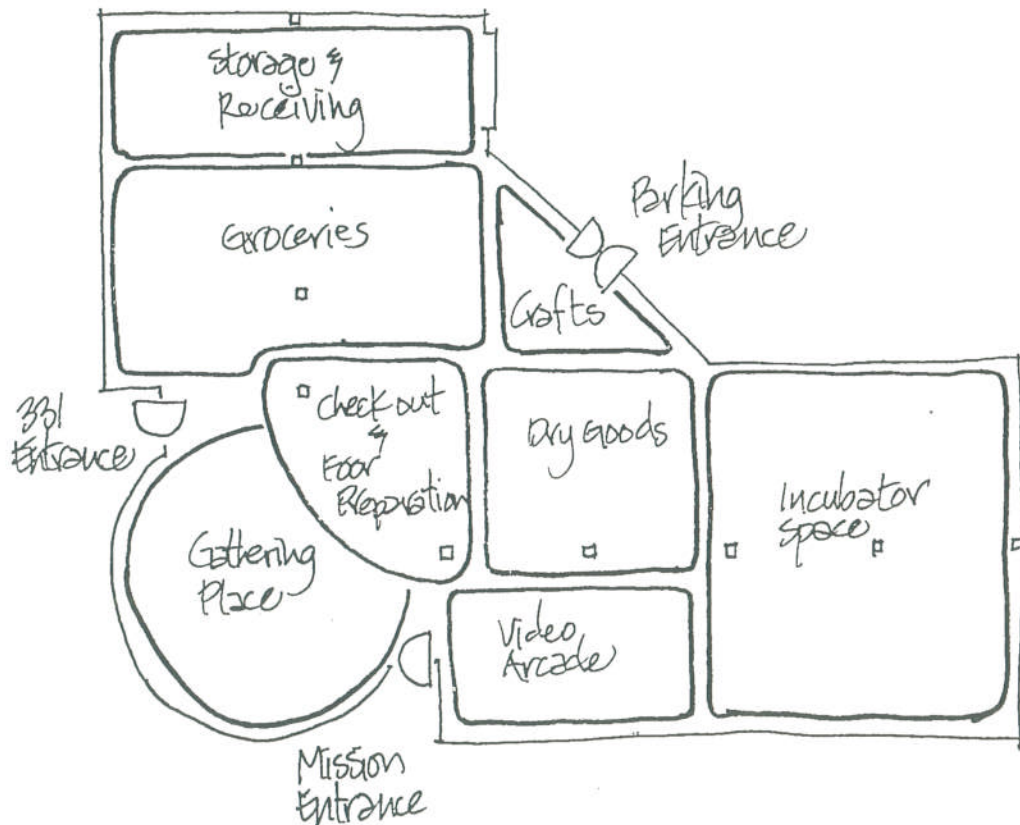 Storage &
Receiving
Groceries
Parking
Entrance
Crafts
331
Entrance
Check out
&
Food
Preparation
Dry Goods
Incubator
Space
Gathering
Place
Video
Arcade
Mission
Entrance